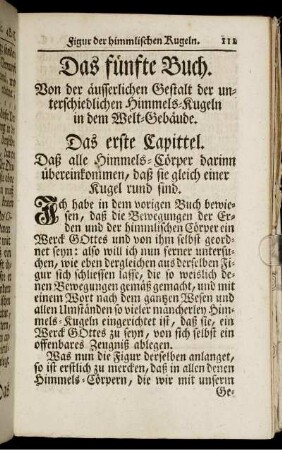 Figur der himmlischen Kugeln. 111
Das fünfte Buch.
Von der äusserlichen Gestalt der un-
terschiedlichen Himmels-Kugeln
in dem Welt-Gebäude.
Das erste Capittel.
Daß alle Himmels-Cörper darinn
übereinkommen, daß sie gleich einer
Kugel rund sind.
Ich habe in dem vorigen Buch bewie-
sen, daß die Bewegungen der Er-
den und der himmlischen Cörper ein
Werck GOttes und von ihn selbst geord-
net seyn: also will ich nun ferner untersu-
chen, wie eben dergleichen aus derselben Fi-
gur sich schliessen lasse, die so weislich de-
nen Bewegungen gemäß gemacht, und mit
einem Wort nach dem gantzen Wesen und
allen Umständen so vieler mancherley Him-
mels-Kugeln eingerichtet ist, daß sie, ein
Werck GOttes zu seyn, von sich selbst ein
offenbares Zeugniß ablegen.
Was nun die Figur derselben anlanget,
so ist erstlich zu mercken, daß in allen denen
Himmels-Cörpern, die wir mit unserm
Ge-